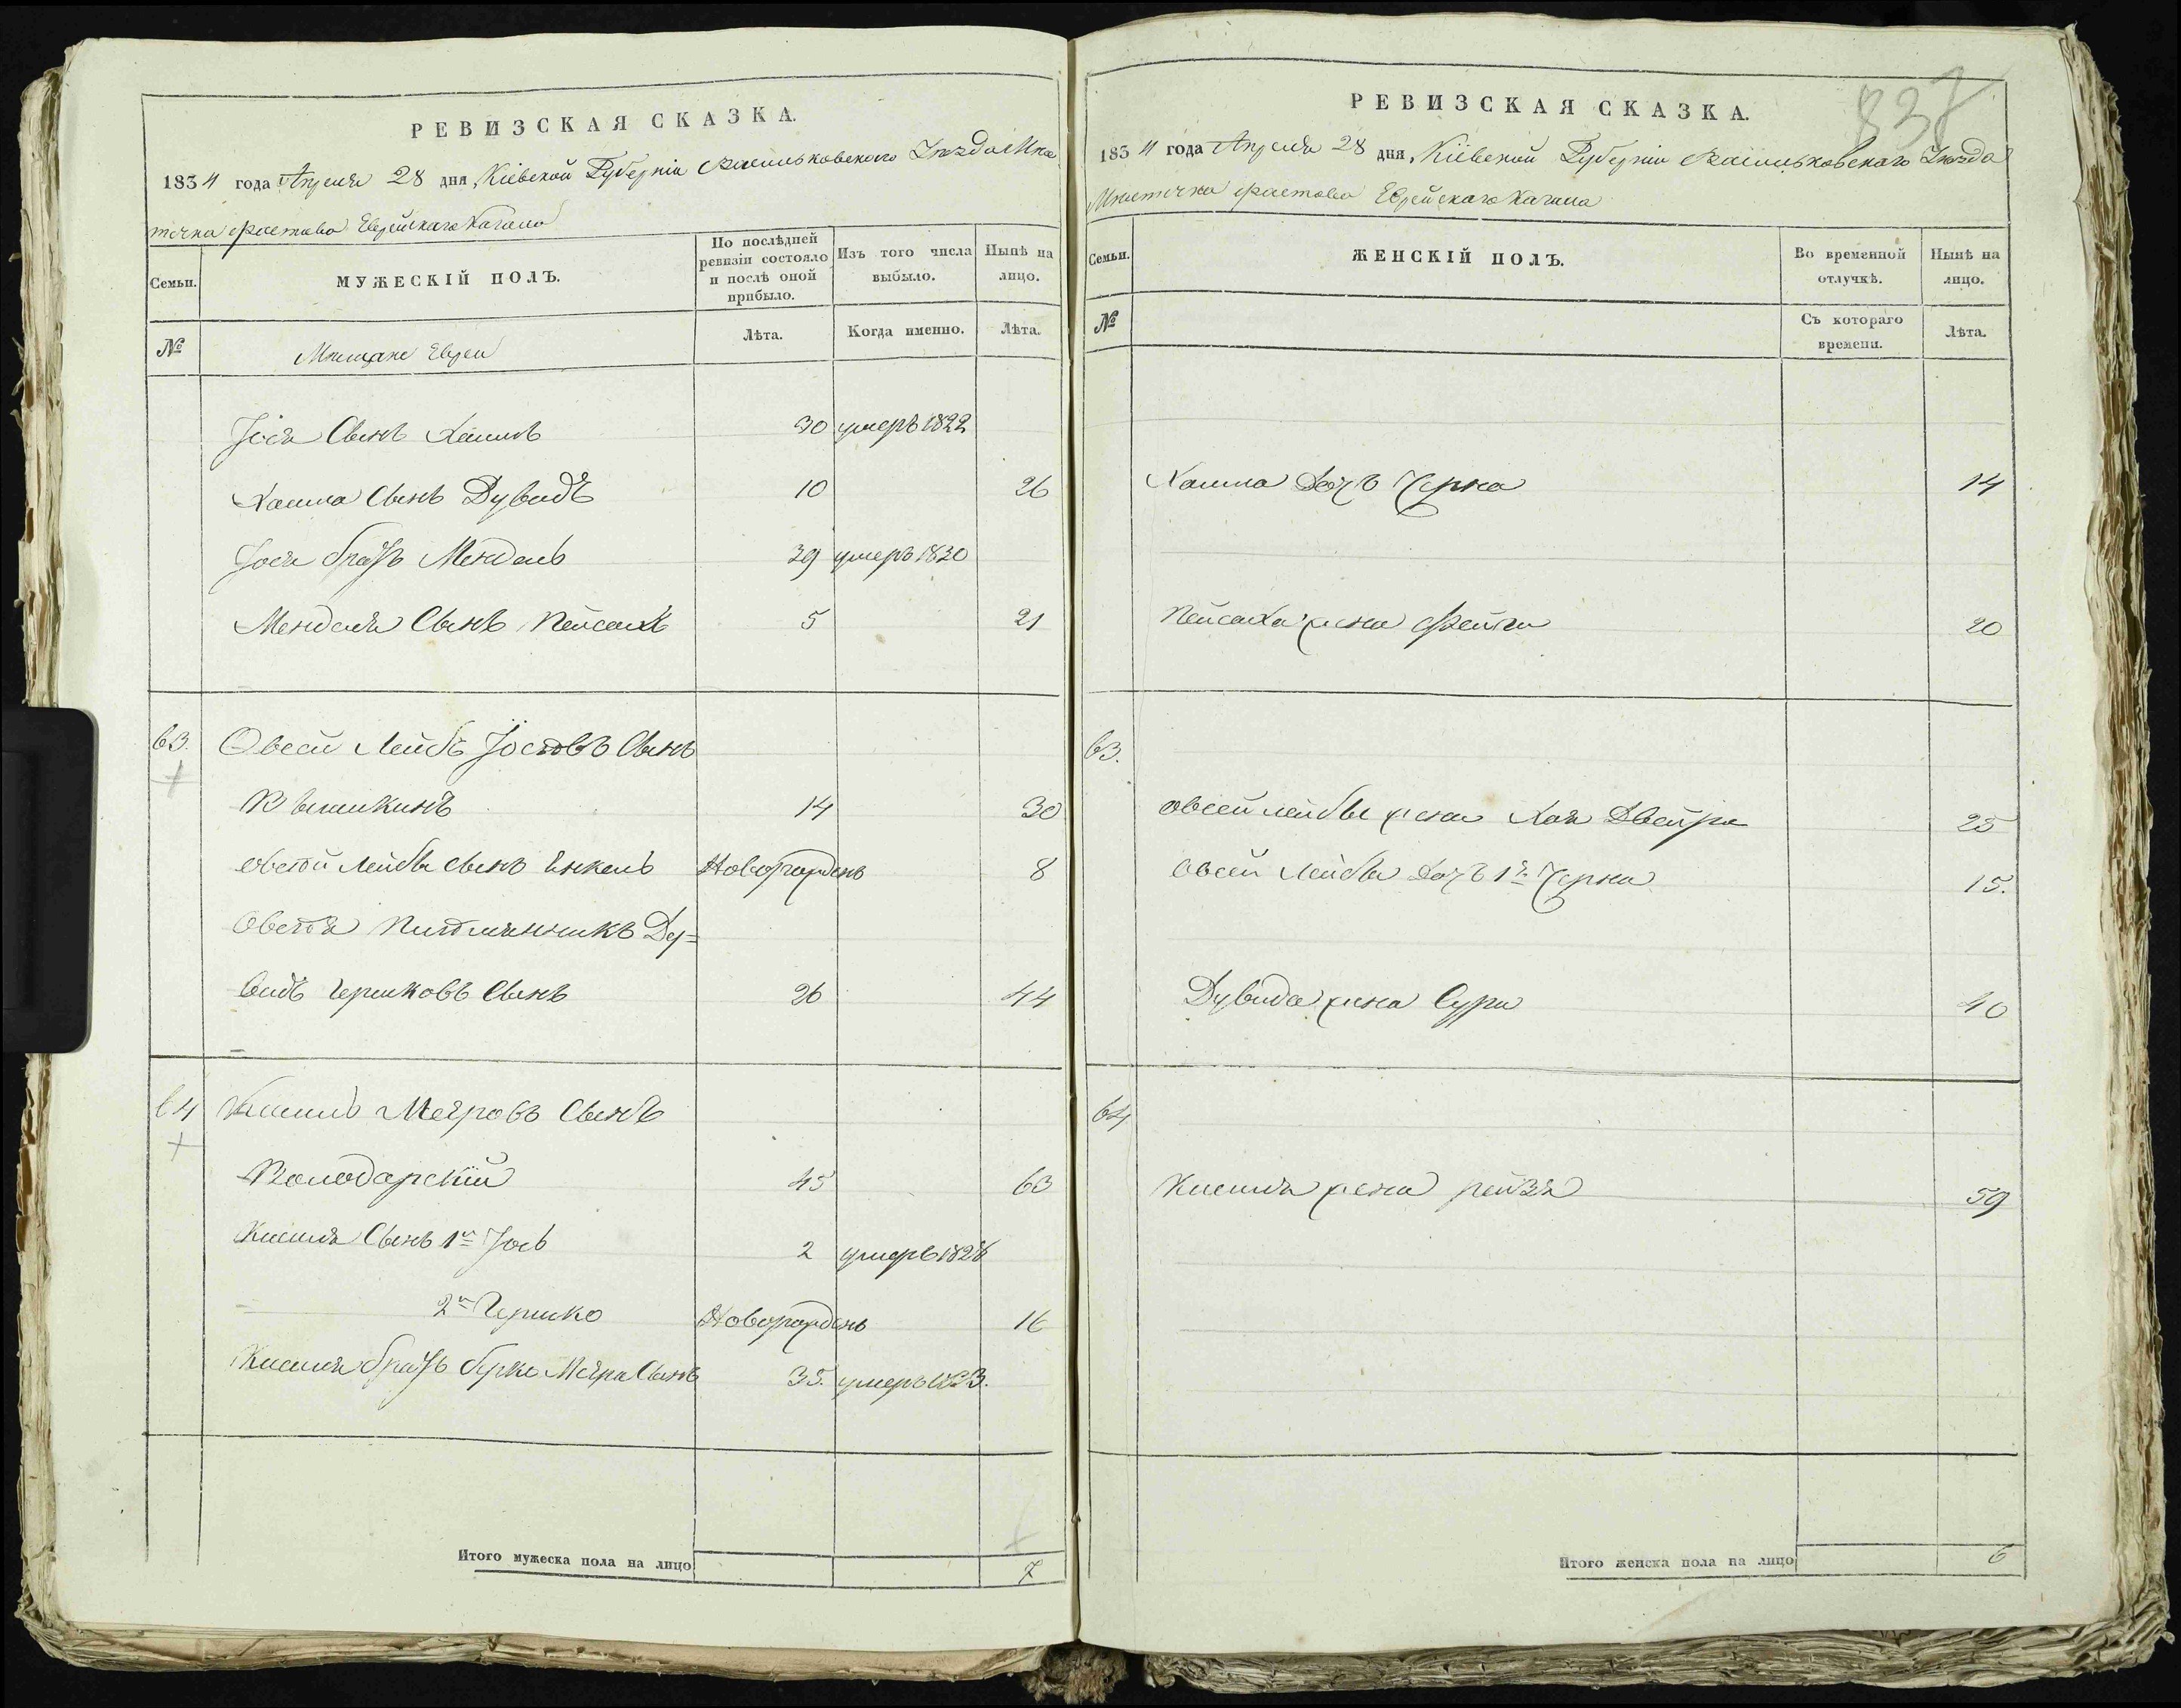 РЕВИЗСКАЯ СКАЗКА.
1834 года Апреля 28 дня Кіевской Губерніи Васильковскаго Уезда Мѣс
течка Фастова Еврейскаго Кагала
Семьи. МУЖЕСКІЙ ПОЛЪ. По послѣдней ревизіи состояло и послѣ оной прибыло. Изъ того числа выбыло. Нынѣ на лицо.
№ Мѣщане Евреи Лѣта. Когда именно. Лѣта.
Іося Сынъ Хаимъ 30 умеръ 1822
Хаима Сынъ Дувидъ 10 26
Іося братъ Мендель 39 умеръ 1830
Менделя Сынъ Пейсахъ 5 21
63. Овсей Лейбъ Іосіовъ Сынъ
14 30
Овсей Лейбы сынъ Янкель Новорожденъ 8
Овсея Племянникъ Ду=
видъ Гершковъ Сынъ 26 44
64 Кисиль Меяровъ Сынъ
Володарскій 45 63
Кисиля Сынъ 1й Іось 2 умеръ 1828
2й Гершко Новорожденъ 16
Кисиля братъ Берко Меяра Сынъ 35. умеръ 1823.
Итого мужеска пола на лицо 7
РЕВИЗСКАЯ СКАЗКА. 837
1834 года Апреля 28 дня Кіевской Губерніи Васильковскаго Уезда
Мѣстечка Фастова Еврейскаго Кагала
Семьи. ЖЕНСКІЙ ПОЛЪ. Во временной отлучкѣ. Нынѣ на лицо.
№ Съ котораго времени. Лѣта.
Хаима Дочъ Черна 14
Пейсаха жена Фейга 20
63.
Овсей Лейбы жена Хая Двейра 25
Овсей Лейбы Дочъ 1я Черна 15.
Дувида жена Сура 40
64
Кисиля жена Рейзя 59
Итого женска пола на лицо 6